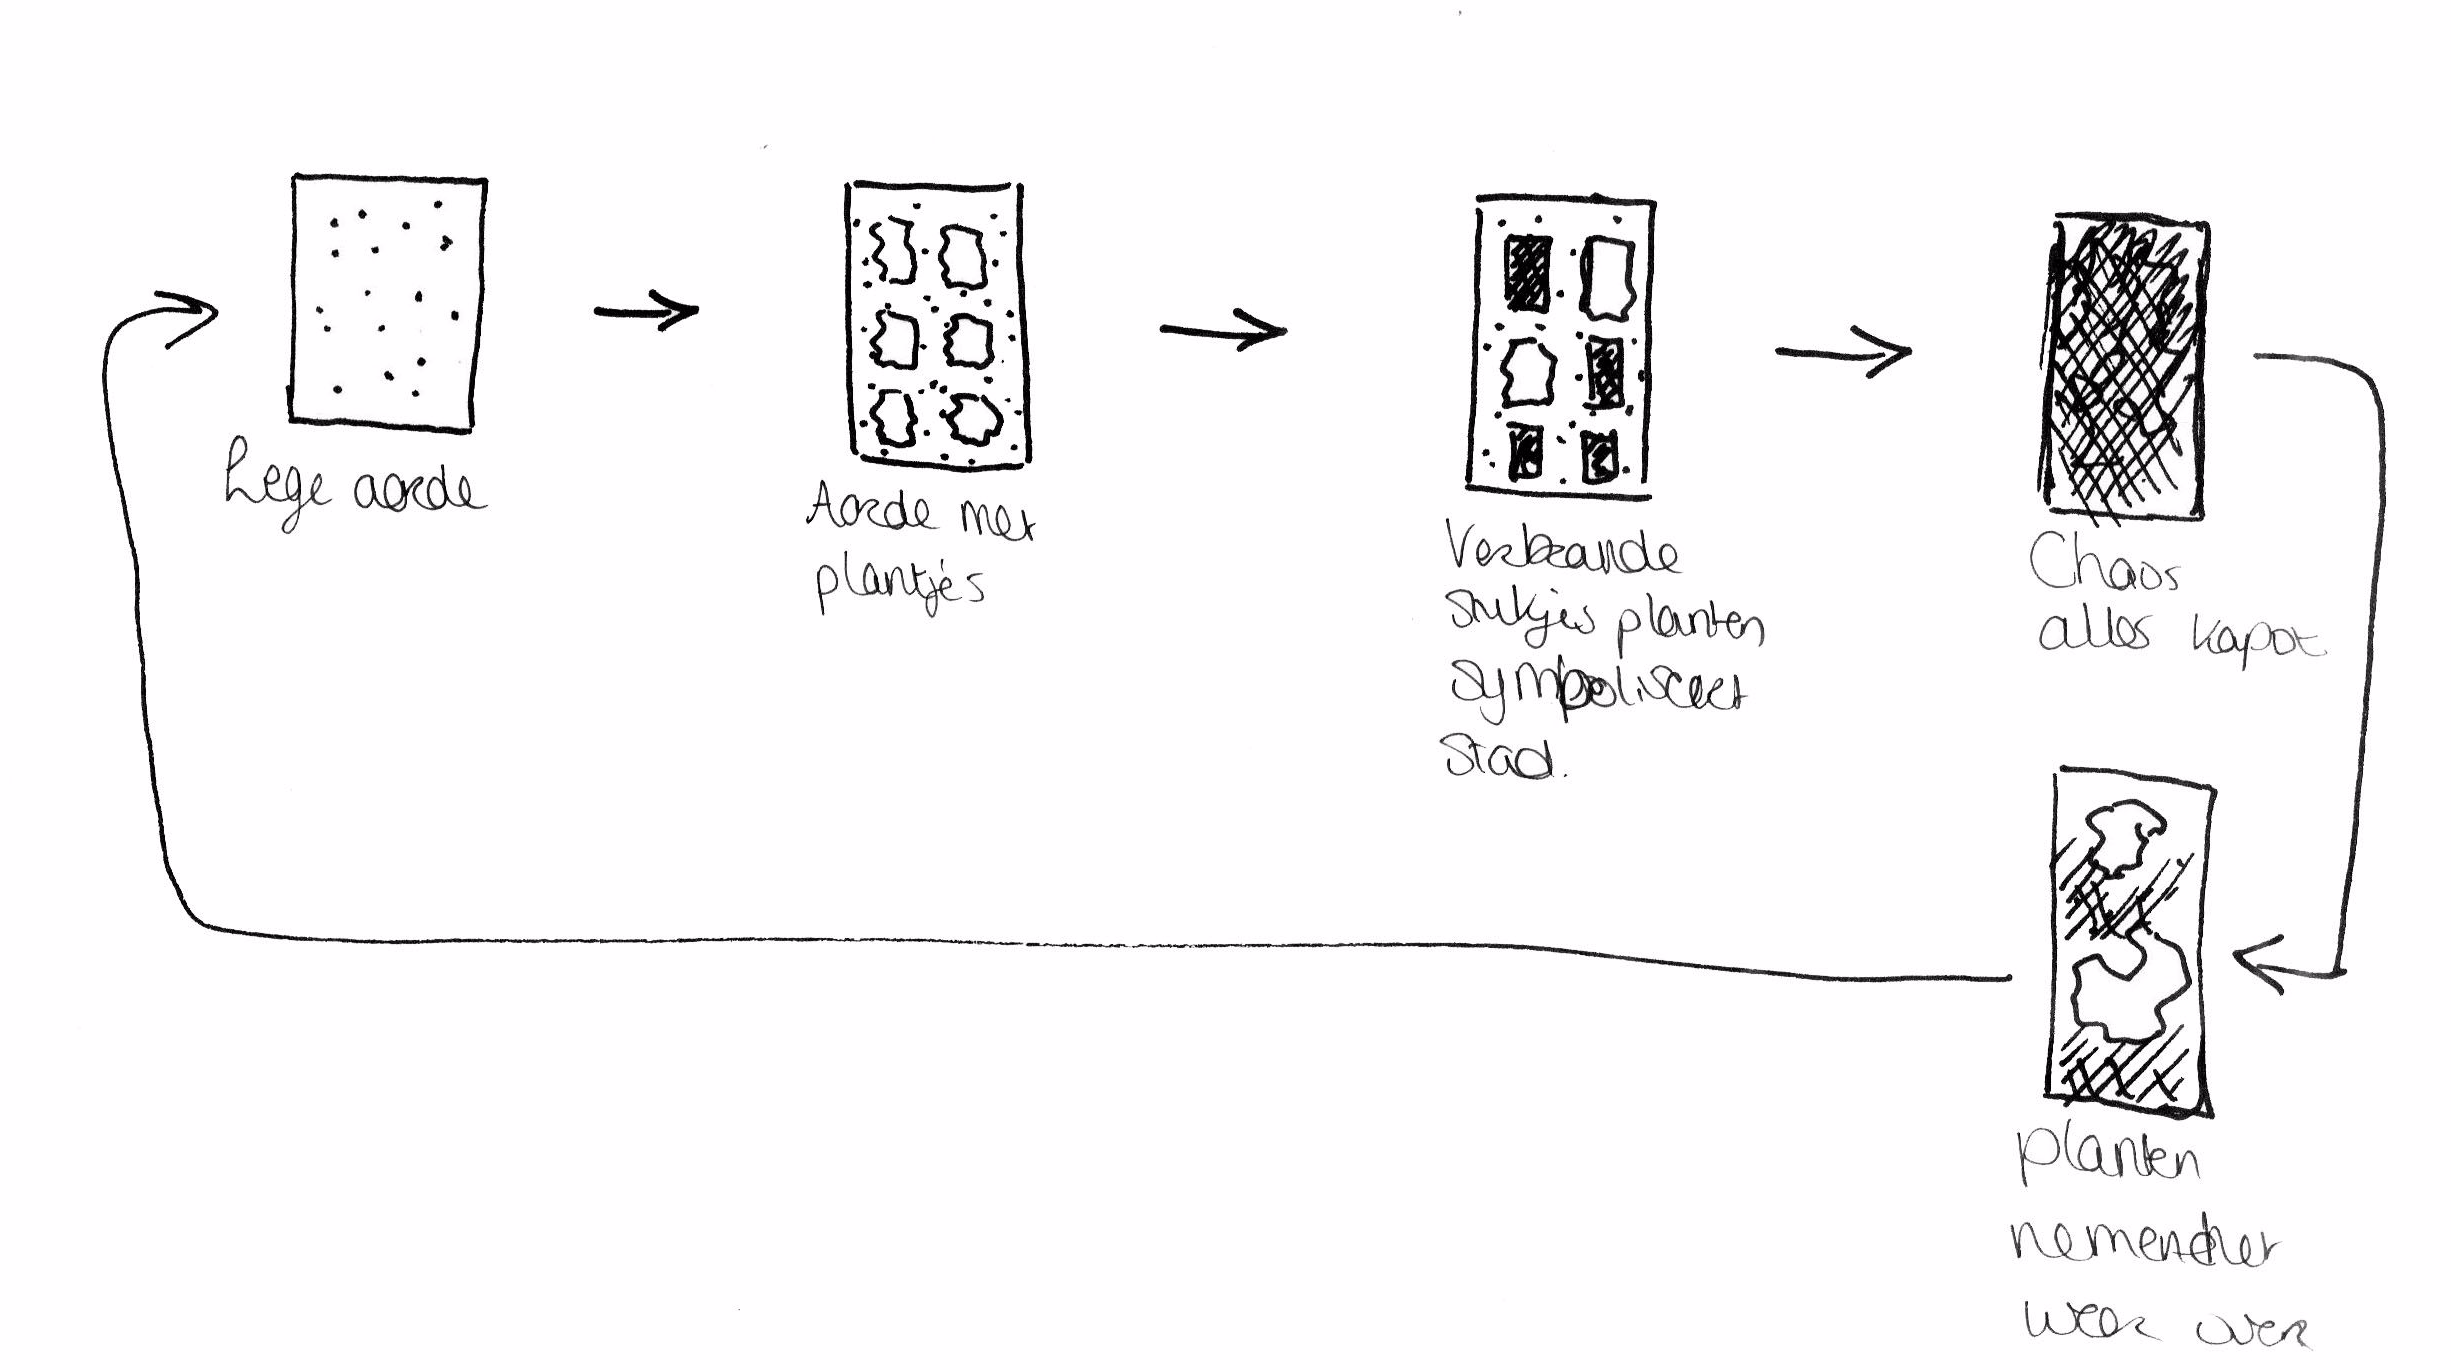 Lege aarde
Aarde met
plantjes
Verbrande
stukjes planten
symboliseert
Stad.
Chaos
alles kapot
planten
nemen het
weer over